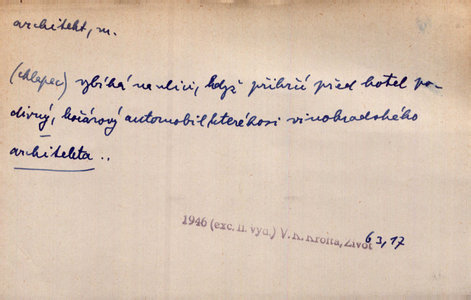 architekt, m.
(chlapec) vybíhá na ulici, když přihrčí před hotel po-
divný, kočárový automobil kteréhosi vinohradského
architekta ..
1946 (exc. II. vyd.) V. K. Krofta, Život 63, 17